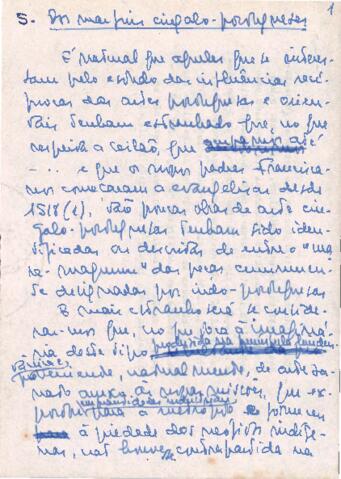 1
5. Dos marfins cingalo-portugueses
É natural que aqueles que se interes-
sam pelo estudo das influências recí-
procas das artes portuguesas e orien-
tais tenham estranhado que, no que
respeita a Ceilão, que
-... e que os nossos padres francisca-
nos começaram a evangelizar desde
1518 (1), tão poucas obras de arte cin-
galo-portuguesas tenham sido iden-
tificadas ou descritas de entre o "ma-
re-magnum" das peças comummen-
te designadas por indo-portuguesas
E mais estranho será se conside-
rarmos que, no que toca à imaginá-
ria deste tipo
proveniente, naturalmente, de artesa-
nato anexo às nossas missões, que ex-
portou para a metrópole e forneceu
à piedade dos neófitos indíge-
nas, não houve contrapartida na